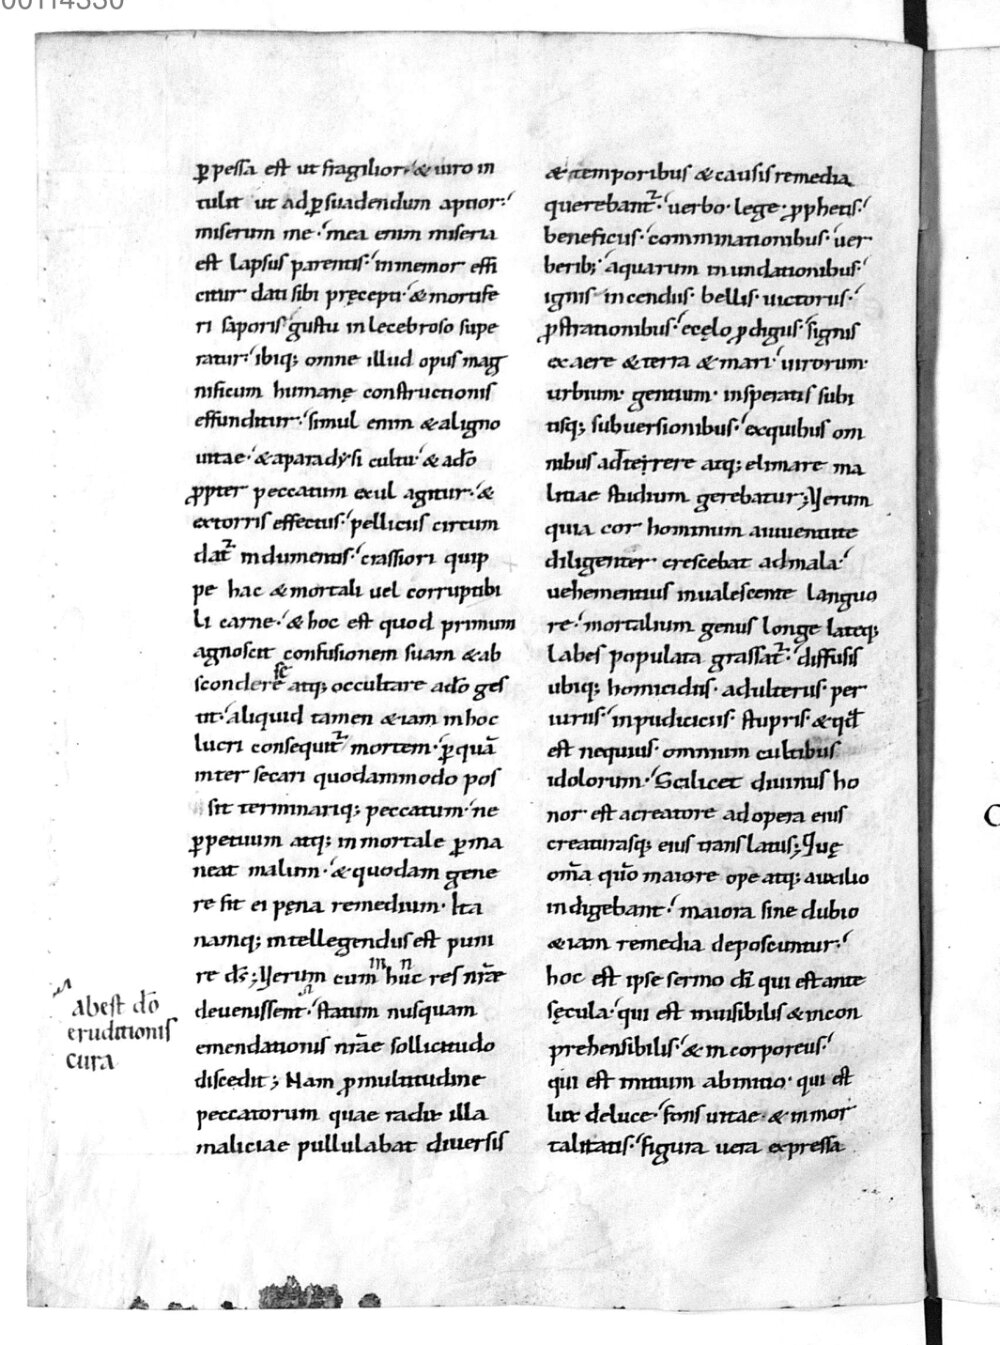 00114330
ꝑpessa est ut fragilior· & uiro in
tulit ut adꝑsuadendum aptior·
miserum me· mea enim miseria
est lapsus parentis· inmemor effi
citur dati sibi pręcepti· & mortife
ri saporis gustu inlecebroso supe
ratur· ibiq; omne illud opus mag
nificum humanę constructionis
effunditur· simul enim & aligno
uitae· & aparadysi cultu· & ado
ꝓpter peccatum exul agitur· &
extorris effectus· pellicius circum
dat᷑ indumentis· crassiori quip
pe hac & mortali uel corruptibi
li carne· & hoc est quod primum
agnoscit confusionem suam & ab
scondere se atq; occultare ado ges
tit· aliquid tamen & iam inhoc
lucri consequit᷑ mortem· ꝑquā
inter secari quodammodo pos
sit terminariq; peccatum· ne
ꝑpetuum atq; inmortale ꝑma
neat malum· & quodam gene
re fit ei pęna remedium· Ita
namq; intellegendus est puni
re ds̄; Uerum cum in hunc res nr̄ae
deuenissent· statum nusquam
emendationis nr̄ae sollicitudo
discedit; Nam ꝓmultitudine
peccatorum quae radix illa
maliciae pullulabat diuersis
abest do
eruditionis
cura
& temporibus & causis remedia
querebant᷑· uerbo· lege· ꝓphetis·
beneficiis· comminationibus· uer
berib; aquarum inundationibus·
ignis incendiis· bellis· uictoriis·
ꝓstrationibus· ecęlo ꝓdigiis· signis
ex aere & terra & mari· uirorum·
urbium· gentium· insperatis subi
tisq; subuersionibus· exquibus om
nibus adterrere atq; elimare ma
litiae studium gerebatur; Uerum
quia cor hominum aiuuentute
diligenter crescebat admala·
uehementius inualescente languo
re· mortalium genus longe lateq;
labes populata grassat᷑· diffusis
ubiq; homicidiis· adulteriis· per
iuriis· inpudiciciis· stupris· & qđ
est nequius· omnium cultibus
idolorum· Scilicet diuinus ho
nor est acreatore ad opera eius
creaturasq; eius translatus; Quę
om̄a qūo maiore ope atq; auxilio
indigebant· maiora sine dubio
& iam remedia deposcuntur·
hoc est ipse sermo dī qui est ante
sęcula· qui est inuisibilis & incon
prehensibilis· & incorporeus·
qui est initium abinitio· qui est
lux deluce· fons uitae· & inmor
talitatis· figura uera expressa